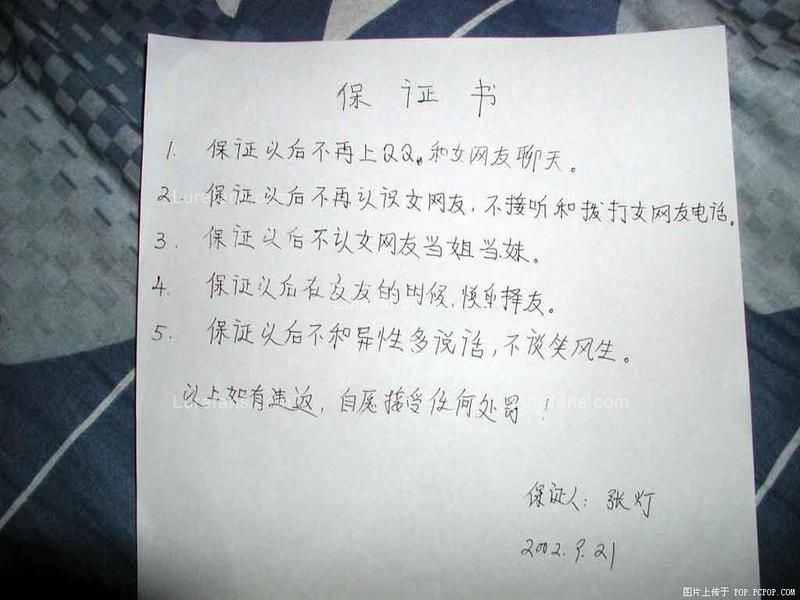 保证书
1. 保证以后不再上QQ，和女网友聊天。
2. 保证以后不再认识女网友，不接听和拨打女网友电话。
3. 保证以后不认女网友当姐当妹。
4. 保证以后在交友的时候，慎重择友。
5. 保证以后不和异性多说话，不谈笑风生。
以上如有违返，自愿接受任何处罚！
保证人：张灯
2002.9.21
Lurefans.com
Lurefans.com
图片上传于 POP.PCPOP.COM